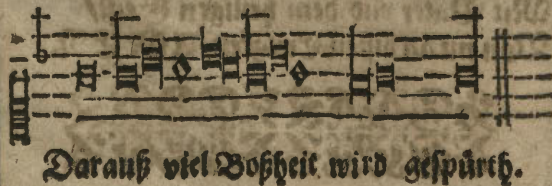 Darauß viel Boßheit wird gespürth.